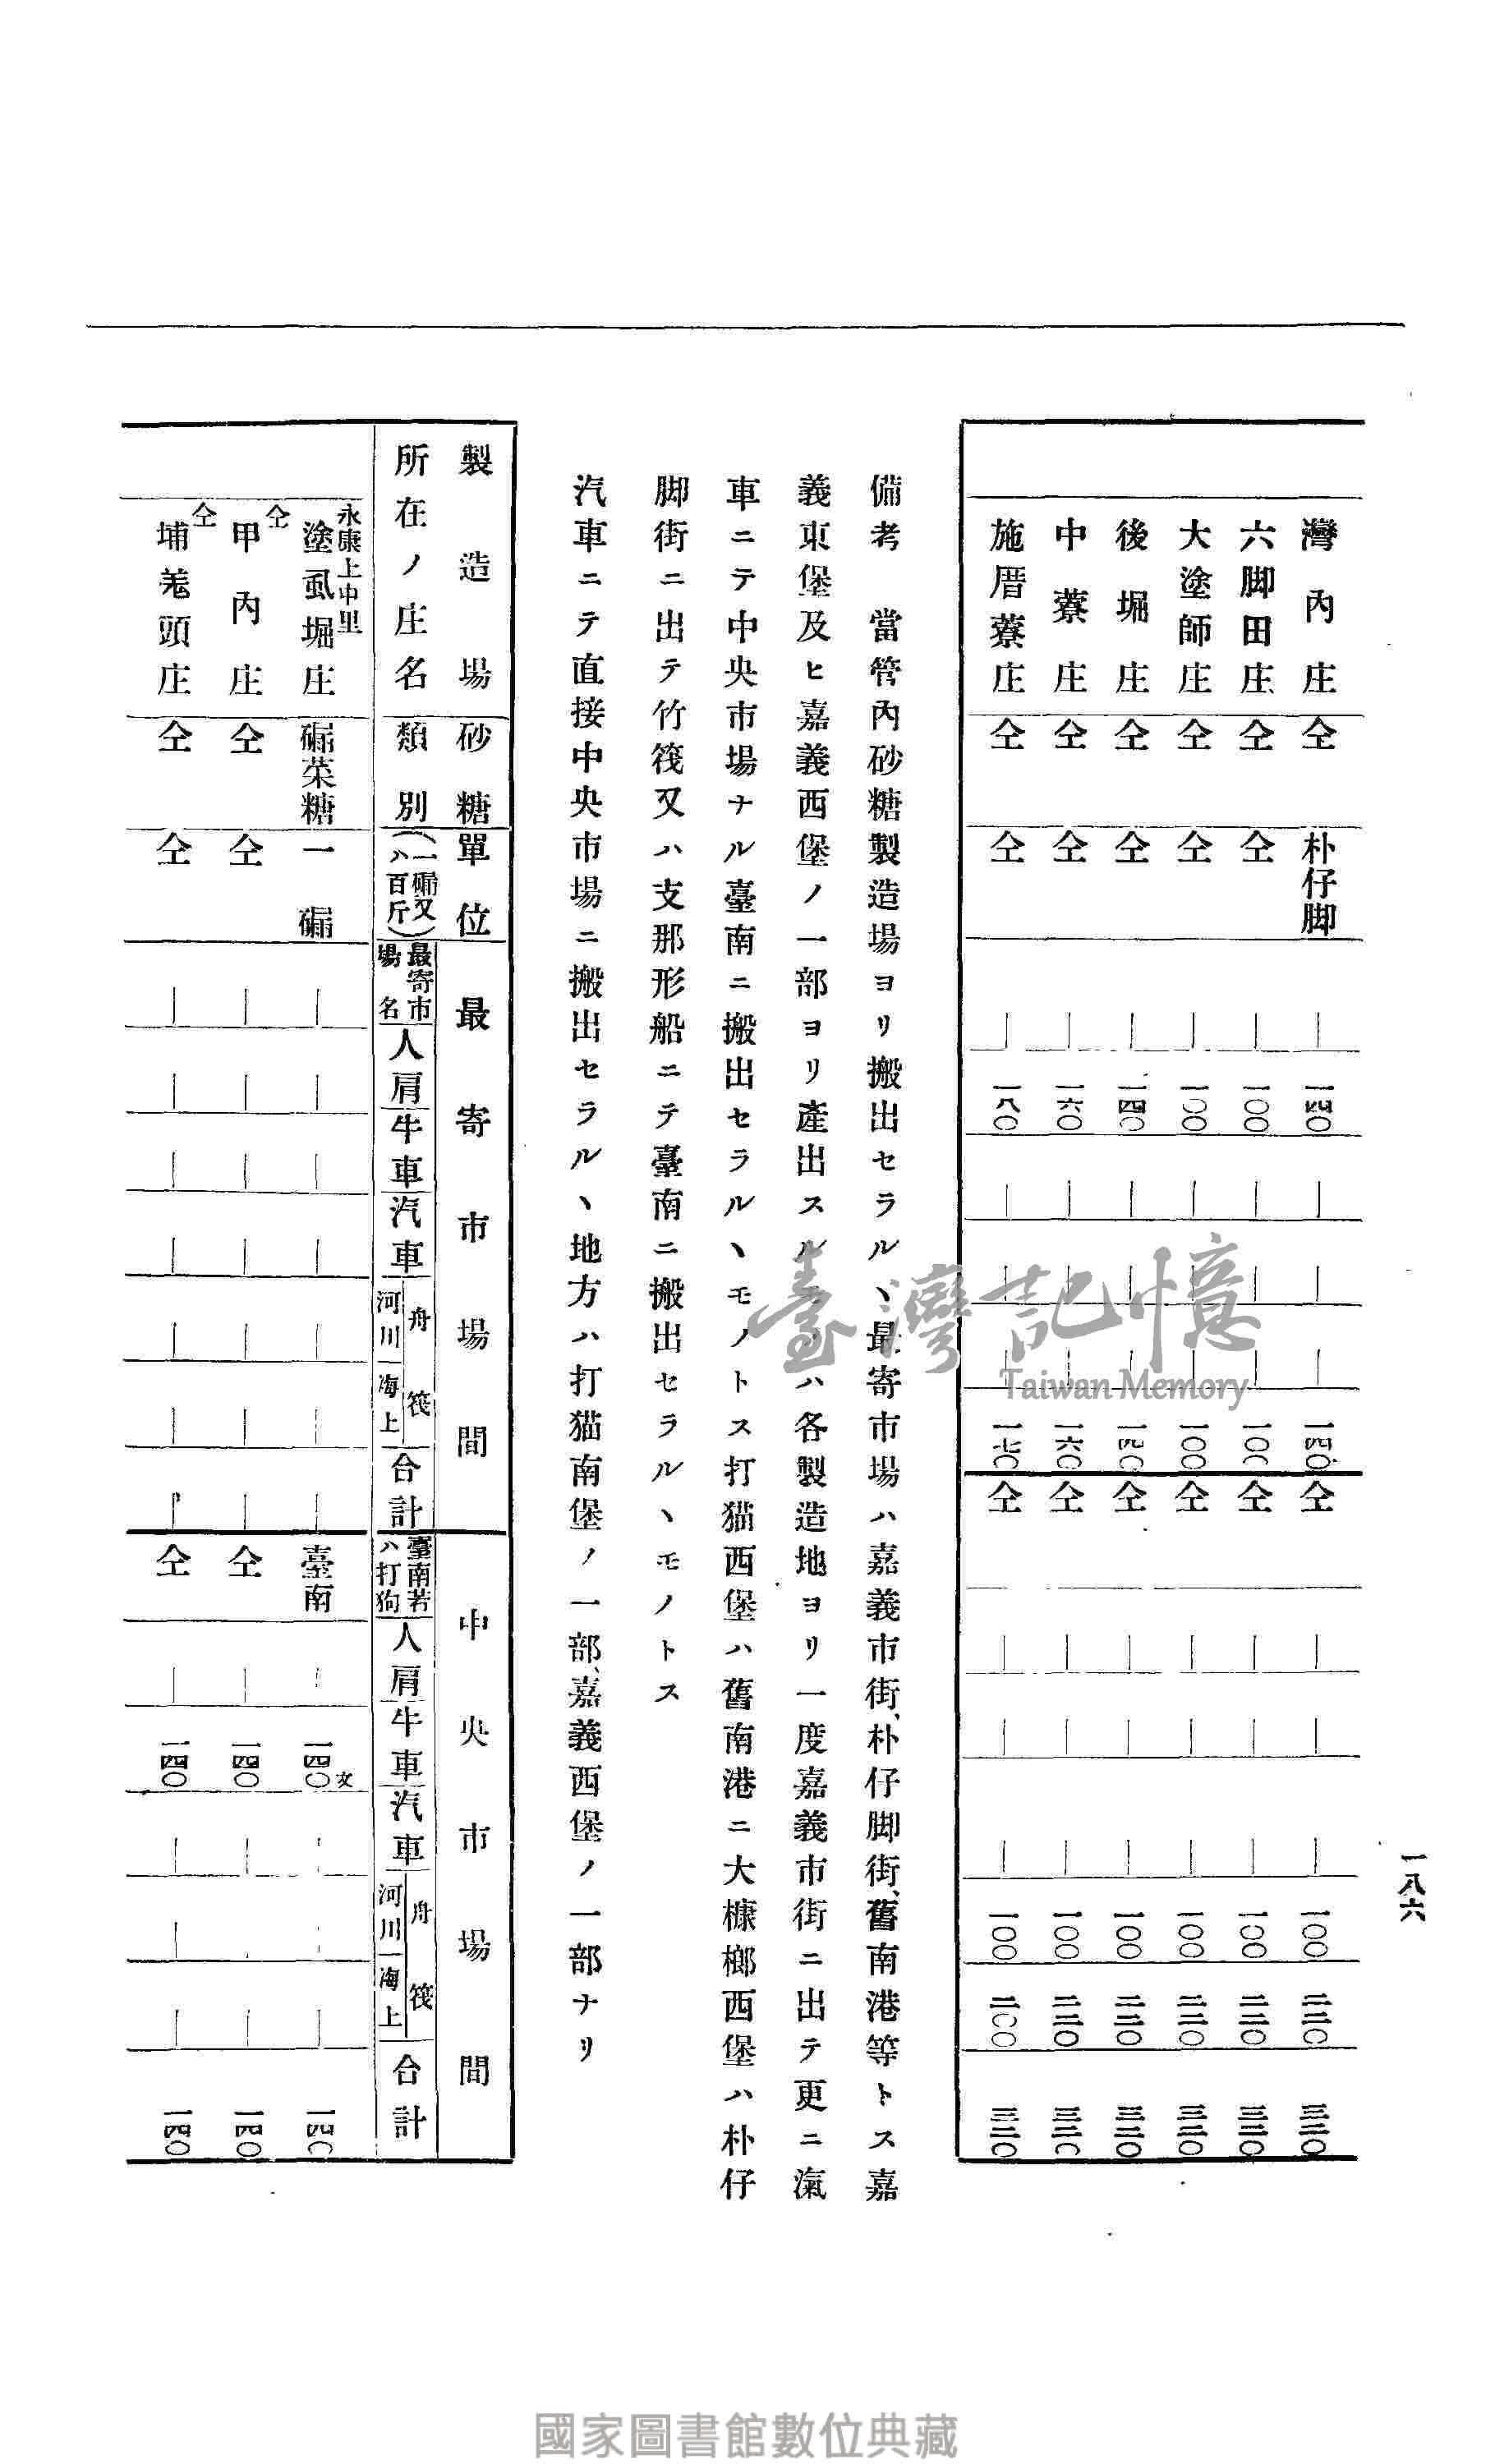 一八六
灣內庄 仝 朴仔脚 ｜ 一四〇 ｜ ｜ ｜ 一四〇 仝 ｜ ｜ ｜ 一〇〇 二二〇 三二〇
六脚田庄 仝 仝 ｜ 一〇〇 ｜ ｜ ｜ 一〇〇 仝 ｜ ｜ ｜ 一〇〇 二二〇 三二〇
大塗師庄 仝 仝 ｜ 一〇〇 ｜ ｜ ｜ 一〇〇 仝 ｜ ｜ ｜ 一〇〇 二二〇 三二〇
後堀庄 仝 仝 ｜ 一四〇 ｜ ｜ ｜ 一四〇 仝 ｜ ｜ ｜ 一〇〇 二二〇 三二〇
中藔庄 仝 仝 ｜ 一六〇 ｜ ｜ ｜ 一六〇 仝 ｜ ｜ ｜ 一〇〇 二二〇 三二〇
施厝藔庄 仝 仝 ｜ 一八〇 ｜ ｜ ｜ 一七〇 仝 ｜ ｜ ｜ 一〇〇 二〇〇 三二〇
備考 當管內砂糖製造場ヨリ搬出セラル丶最寄市場ハ嘉義市街、朴仔脚街、舊南港等トス嘉
義東堡及ヒ嘉義西堡ノ一部ヨリ產出スル ハ各製造地ヨリ一度嘉義市街ニ出テ更ニ滊
車ニテ中央市場ナル臺南ニ搬出セラル丶モノトス打猫西堡ハ舊南港ニ大槺榔西堡ハ朴仔
脚街ニ出テ竹筏又ハ支那形船ニテ臺南ニ搬出セラル丶モノトス
汽車ニテ直接中央市場ニ搬出セラル丶地方ハ打猫南堡ノ一部、嘉義西堡ノ一部ナリ
製造場 砂糖 單位 最寄市場間 中央市場間
所在ノ庄名 類別 (一𥖁又ハ百斤) 最寄市場名 人肩 牛車 汽車 舟筏 河川 海上 合計 臺南若ハ打狗 人肩 牛車 汽車 舟筏 河川 海上 合計
永康上中里
塗虱堀庄 𥖁菜糖 一𥖁 ｜ ｜ ｜ ｜ ｜ ｜ ｜ 臺南 ｜ 一四〇文 ｜ ｜ ｜ 一四〇
仝
甲內庄 仝 仝 ｜ ｜ ｜ ｜ ｜ ｜ ｜ 仝 ｜ 一四〇 ｜ ｜ ｜ 一四〇
仝
埔羗頭庄 仝 仝 ｜ ｜ ｜ ｜ ｜ ｜ ｜ 仝 ｜ 一四〇 ｜ ｜ ｜ 一四〇
臺灣記憶
Taiwan Memory
國家圖書館數位典藏